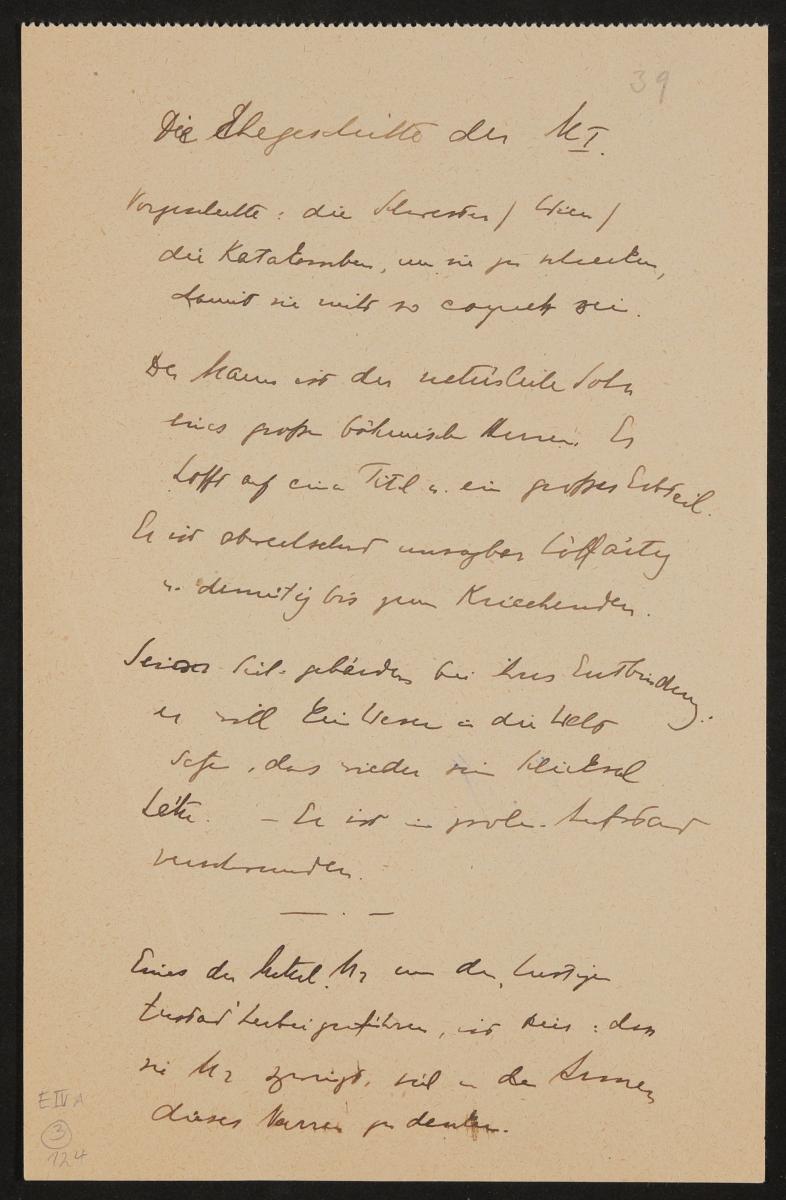 39
Die Ehegeschichte der M I.
Vorgeschichte: die Schwester / Wien /
die Katakomben, um sie zu schrecken,
damit sie nicht so coquett sei.
Der Mann ist der natürliche Sohn
eines großen böhmischen Herren. Er
hofft auf einen Titel u. ein großes Erbteil.
Er ist abwechselnd unsagbar hoffärtig
u. demütig bis zum Kriechenden.
Seine gebärden bei ihrer Entbindung:
er will kein Wesen in die Welt
setzen, das wieder ein Schicksal
hätte. – Er ist im Aufstand
verschwunden.
— . —
Eines der Mittel M2 um den
Zustand herbeizuführen, ist dies: dass
sie M2 zwingt, sich in den Armen
dieses Narren zu denken.
E IV A
3
124